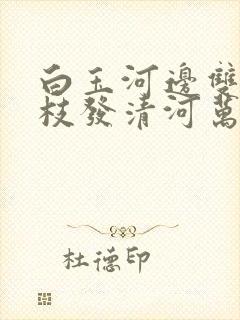 白玉河邊雙
枝發清河萬
杜德印